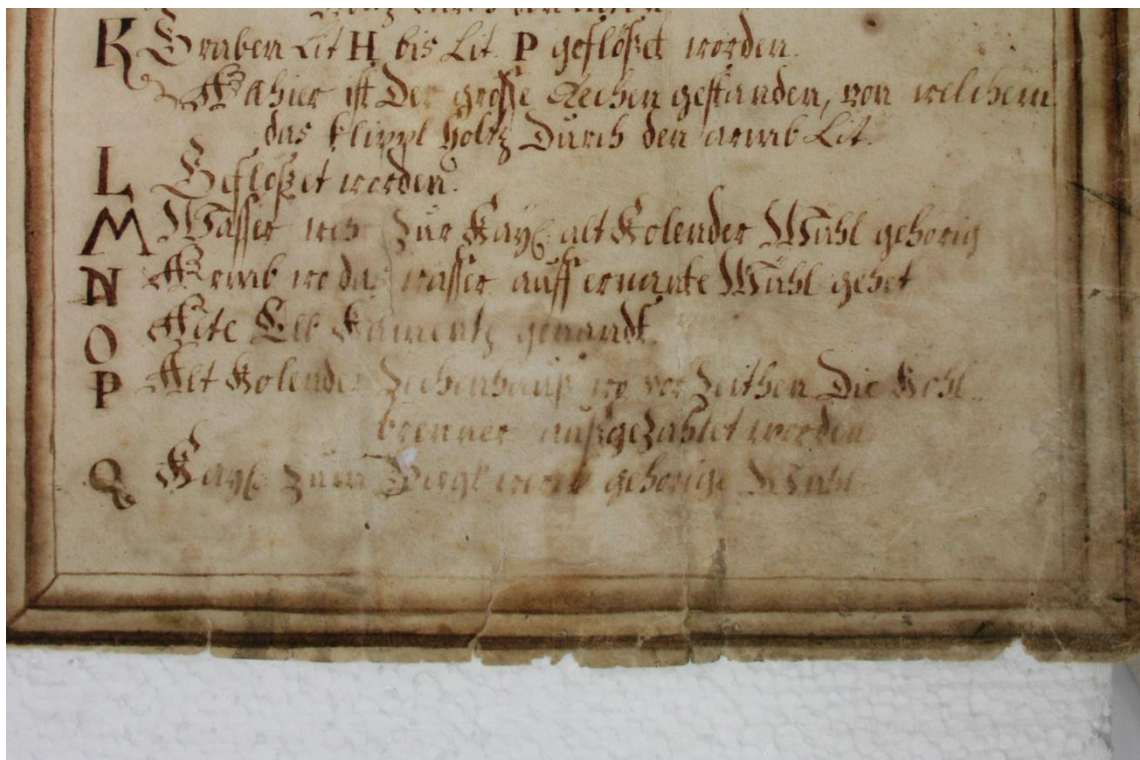 K Graben Lit H bis Lit. P geflößet worden.
Alhier ist Der große Rechen gestanden, von welchem
das klippl holtz Durch den armb Lit.
L Geflößet worden.
M Wasser zur Kayß. alt Kolender Mühl gehörig
N Armb wo das wasser auff ernante Mühl gehet
O Alte Elb genandt.
P Alt Kolender Zechenhauß wo vor Zeithen Die Kohl
brenner außgezahlet worden
Q Kayß. zum gehörige Mühl